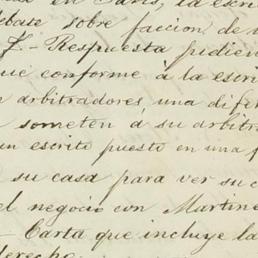 en Paris, la escri
 base sobre faccion de
7. - Respuesta pidien
que conforme á la escri
arbitradores, una dife
someten á su arbitr
un escrito puesto en una
su casa para ver su
el negocio con Martine
- Carta que incluye la
derecho.